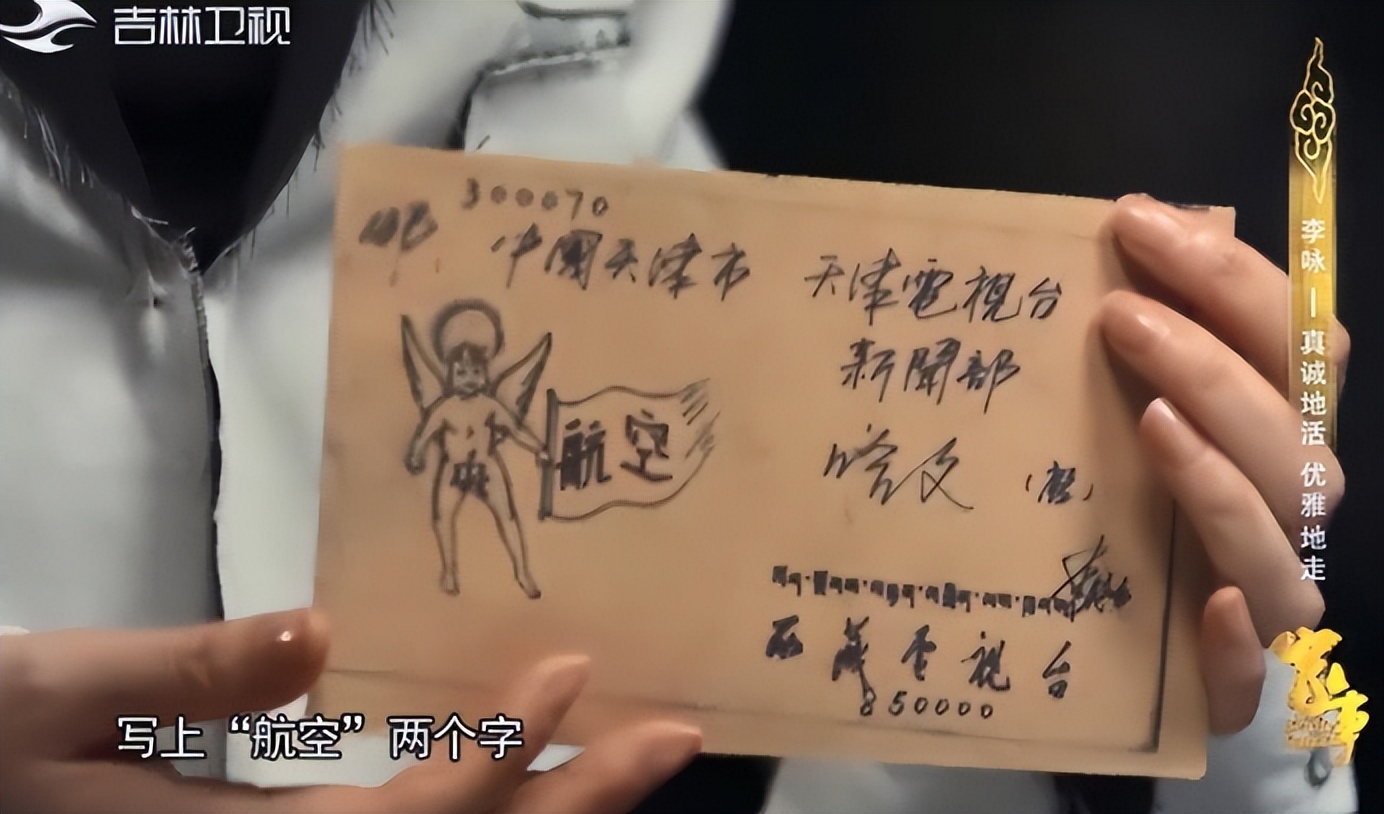 吉林卫视
300070
中國天津市
天津電視台
新聞部
哈文
航空
西藏电視台
850000
写上“航空”两个字
李咏——真诚地活 优雅地走
家事